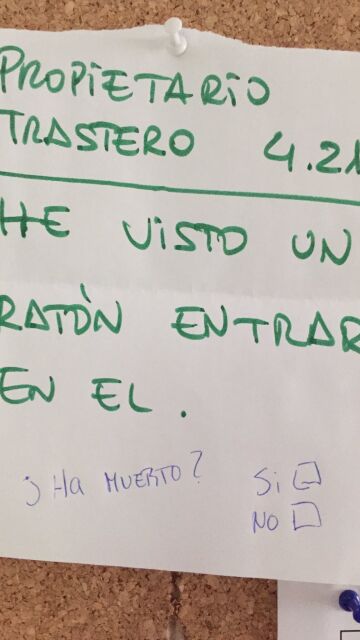 PROPIETARIO
TRASTERO 4.2
HE VISTO UN
RATÒN ENTRAR
EN EL.
¿HA MUERTO? Si
NO